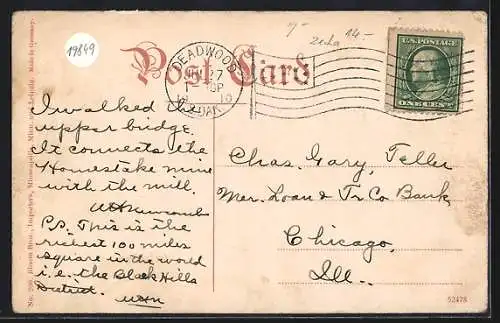 19849
7-
zeha 14.-
Post Card
DEADWOOD
27
S.DAK.
U.S. POSTAGE
ONE CENT
I walked the
upper bridge.
It connects the
Homestake mine
with the mill.
P.S. This is the
richest 100 miles
square in the world
i.e. the Black Hills
District.
Chas. Gary, Teller
Mer. Loan & Tr Co Bank
Chicago,
Ill.
No. 200 Bloom Bros., Importers, Minneapolis, Minn. and Leipzig. Made in Germany.
52478